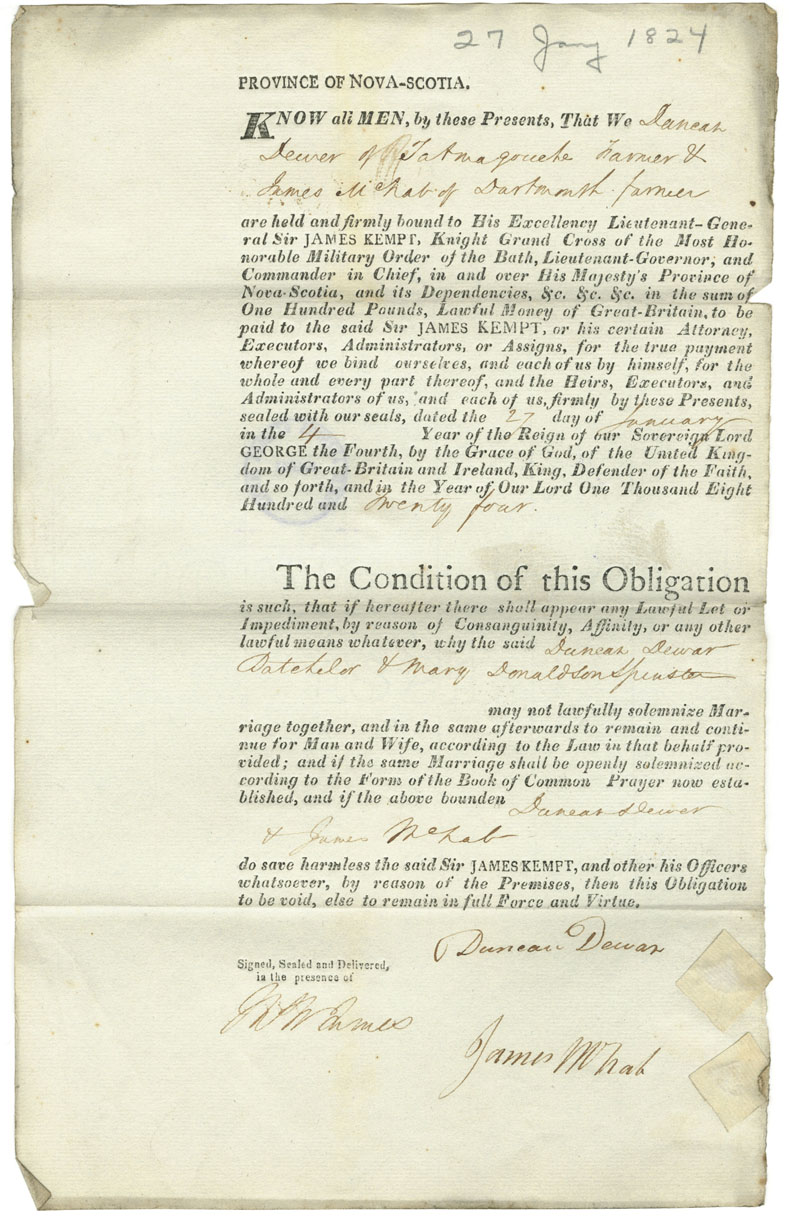 27 Jany 1824
PROVINCE OF NOVA-SCOTIA.
KNOW all MEN, by these Presents, That We Duncan
Dewer of Tatmagouche Farmer &
James McNab of Dartmouth farmer
are held and firmly bound to His Excellency Lieutenant-Gene-
ral Sir JAMES KEMPT, Knight Grand Cross of the Most Ho-
norable Military Order of the Bath, Lieutenant-Governor, and
Commander in Chief, in and over His Majesty's Province of
Nova-Scotia, and its Dependencies, &c. &c. &c. in the sum of
One Hundred Pounds, Lawful Money of Great-Britain, to be
paid to the said Sir JAMES KEMPT, or his certain Attorney,
Executors, Administrators, or Assigns, for the true payment
whereof we bind ourselves, and each of us by himself, for the
whole and every part thereof, and the Heirs, Executors, and
Administrators of us, and each of us, firmly by these Presents,
sealed with our seals, dated the 27 day of January
in the 4 Year of the Reign of our Sovereign Lord
GEORGE the Fourth, by the Grace of God, of the United King-
dom of Great-Britain and Ireland, King, Defender of the Faith,
and so forth, and in the Year of Our Lord One Thousand Eight
Hundred and Twenty four.
The Condition of this Obligation
is such, that if hereafter there shall appear any Lawful Let or
Impediment, by reason of Consanguinity, Affinity, or any other
lawful means whatever, why the said Duncan Dewar
Batchelor & Mary Donaldson Spinster
may not lawfully solemnize Mar-
riage together, and in the same afterwards to remain and conti-
nue for Man and Wife, according to the Law in that behalf pro-
vided; and if the same Marriage shall be openly solemnized ac-
cording to the Form of the Book of Common Prayer now esta-
blished, and if the above bounden Duncan Dewer
& James McNab
do save harmless the said Sir JAMES KEMPT, and other his Officers
whatsoever, by reason of the Premises, then this Obligation
to be void, else to remain in full Force and Virtue.
Duncan Dewar
Signed, Sealed and Delivered,
in the presence of
James
James McNab